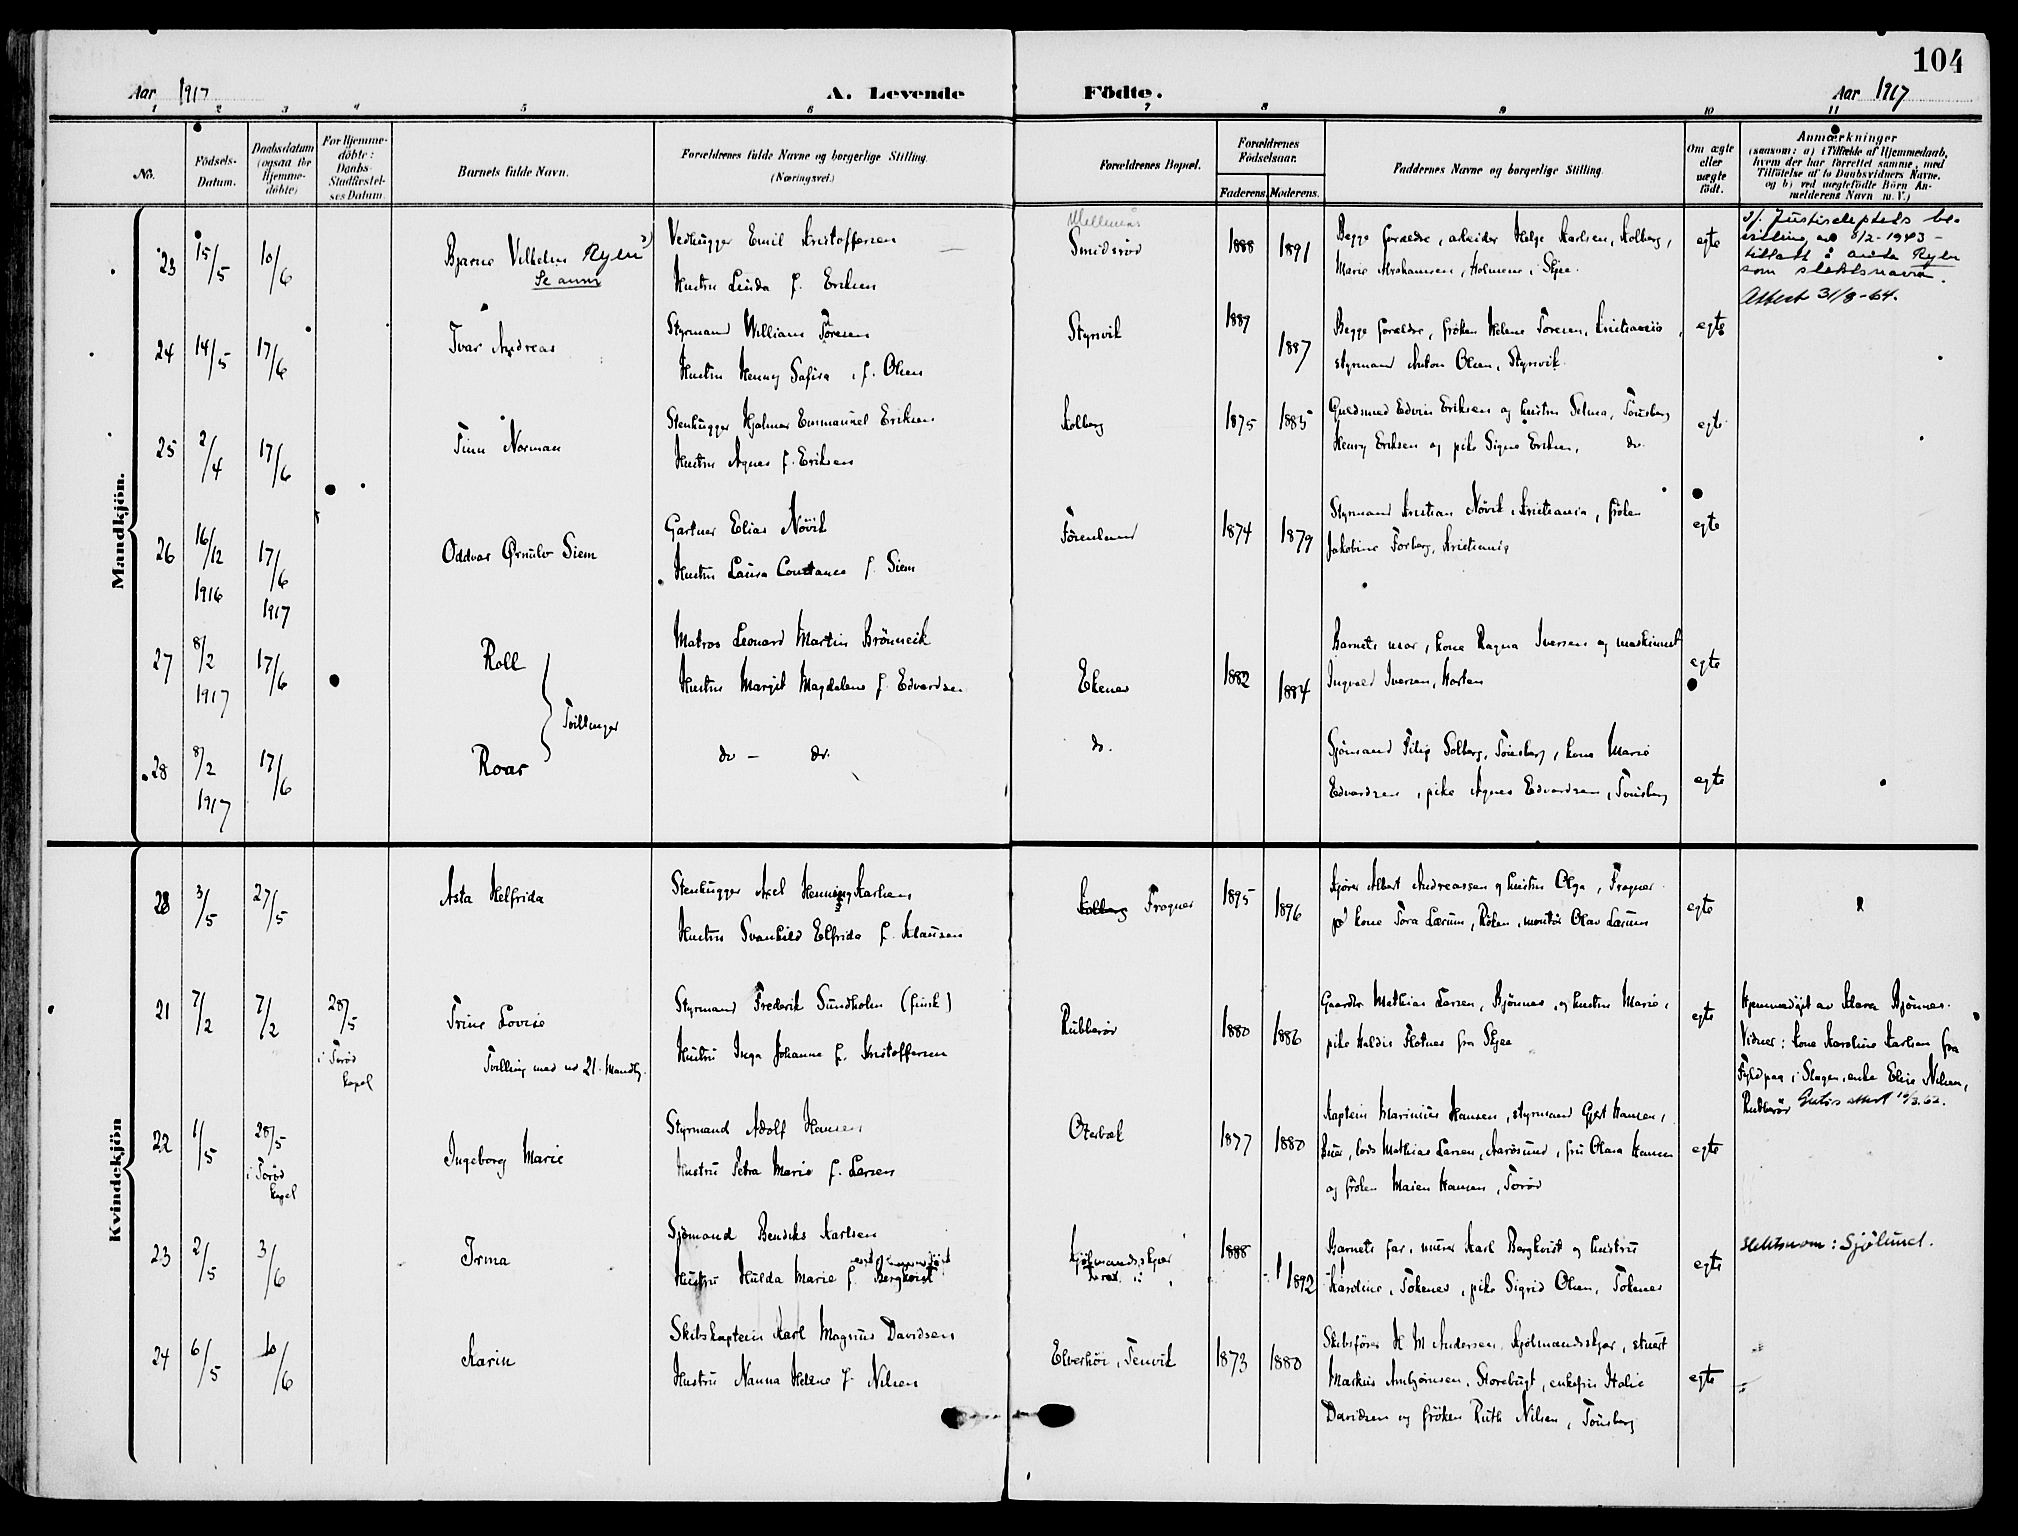 104
Aar 1917 A. Levende Födte. Aar 1917
1 2 3 4 5 6 7 8 9 10 11
No.
Födsels-
Datum.
Daabsdatum
(ogsaa for
Hjemme-
döbte)
For Hjemme-
döbte:
Daabs-
Stadfæstel-
ses Datum
Barnets fulde Navn.
Forældrenes fulde Navne og borgerlige Stilling.
(Næringsvei.)
Forældrenes Bopæl.
Forældrenes
Födselsaar.
Faderens. Moderens.
Faddernes Navne og borgerlige Stilling.
Om ægte
eller
uægte
födt.
Anmærkninger
(saasom: a) i Tilfælde af Hjemmedaab,
hvem der har forrettet samme, med
Tilföielse af to Daabsvidners Navne.
og b) ved uegtefödte Börn An-
melderens Navn m. V.)
Mandkjön.
23 15/5 10/6 Bjarne Vilhelm Ryen
Se anm
Vedhugger Emil Kristoffersen
Hustru Linda f. Eriksen
Smidsrød
1888 1891
Begge forældre, arbeider Helge Karlsen, Kolberg,
Marie Abrahamsen, Holmene i Skjee.
egte
som slektsnavn.
Attest 31/8-64.
24 14/5 17/6 Ivar Andreas
Styrmand William Foresen
Hustru Henny Safira, f. Olsen
Styrsvik
1889 1887
Begge forældre, frøken Helene Foresen, Kristiania,
styrmand Anton Olsen, Styrsvik.
egte
25 2/4 17/6 Finn Norman
Stenhugger Hjalmar Emmanuel Eriksen
Hustru Agnes f. Eriksen
Kolberg
1875 1885
Guldsmed Edvin Eriksen og hustru Selma, Tönsberg
Henry Eriksen og pike Signe Eriksen, do
egte
26 16/12 1916 17/6 1917 Oddvar Ørnulv Siem
Gartner Elias Növik
Hustru Laura Constance f. Siem
1874 1879
Styrmand Kristian Növik, Kristiania, frøken
Jakobine Forberg, Kristiania
egte
27 8/2 1917 17/6 Roll
Tvillinger
Matros Leonard Martin Brönneik
Hustru Margit Magdalene f. Edvardsen
Ekenes
1882 1884
Barnets mor, kone Ragna Iversen og maskinist
Ingvald Iversen, Horten
egte
28 8/2 1917 17/6 Roar
do - do.
do.
Sjömand Filip Solberg, Tönsberg, kone Marie
Edvardsen, pike Agnes Edvardsen, Tönsberg
egte
Kvindekjön
20 3/5 27/5 Asta Helfrida
Stenhugger Axel Henning Karlsen
Hustru Svanhild Elfrida f. Klausen
Kolberg Fragner
1895 1896
Kjører Albert Andreassen og hustru Olga, Fragner
kone Tora Lærum, Röken, montör Olav Lærum
egte
21 7/2 7/2 28/5 i Torød kapel
Trine Lovise
Tvilling med no 21. Mandkj.
Styrmand Frederik Sundholm (finsk)
Hustru Inga Johanne f. Kristoffersen
Rubberød
1880 1886
Gaardbr Mathias Larsen, Bjönnes, og hustru Marie,
pike Haldis Flotnes fra Skjee
egte
Hjemmedöpt av Klara Bjönnes.
Vidner: kone Karoline Karlsen fra
Fyldpaa i Slagen, enke Elise Nilsen,
Rubberød
22 1/5 28/5 i Torød kapel
Ingeborg Marie
Styrmand Adolf Hansen
Hustru Petra Marie f. Larsen
Oterbæk
1877 1880
Kaptein Marinius Hansen, styrmand Gjert Hansen,
Buer, lods Mathias Larsen, Aarøsund, fru Olava Hansen
og frøken Maien Hansen, Torød
egte
23 2/5 3/6 Irma
Sjömand Bendiks Karlsen
Hustru Hulda Marie f. Bergkvist
Kjölmandsskjær
1888 1892
Barnets far, murer Karl Bergkvist og hustru
Karoline, Tokenes, pike Sigrid Olsen, Tokenes
egte
slektsnavn: Sjölund.
24 6/5 10/6 Karin
Skibskaptein Karl Magnus Davidsen
Hustru Nanna Helene f. Nilsen
Elverhöi, Tenvik
1873 1880
Skibsförer H M Andersen, Kjölmandsskjær, stuert
Markus Ambjörnsen, Storebugt, enkefru Italie
Davidsen og fröken Ruth Nilsen, Tönsberg
egte